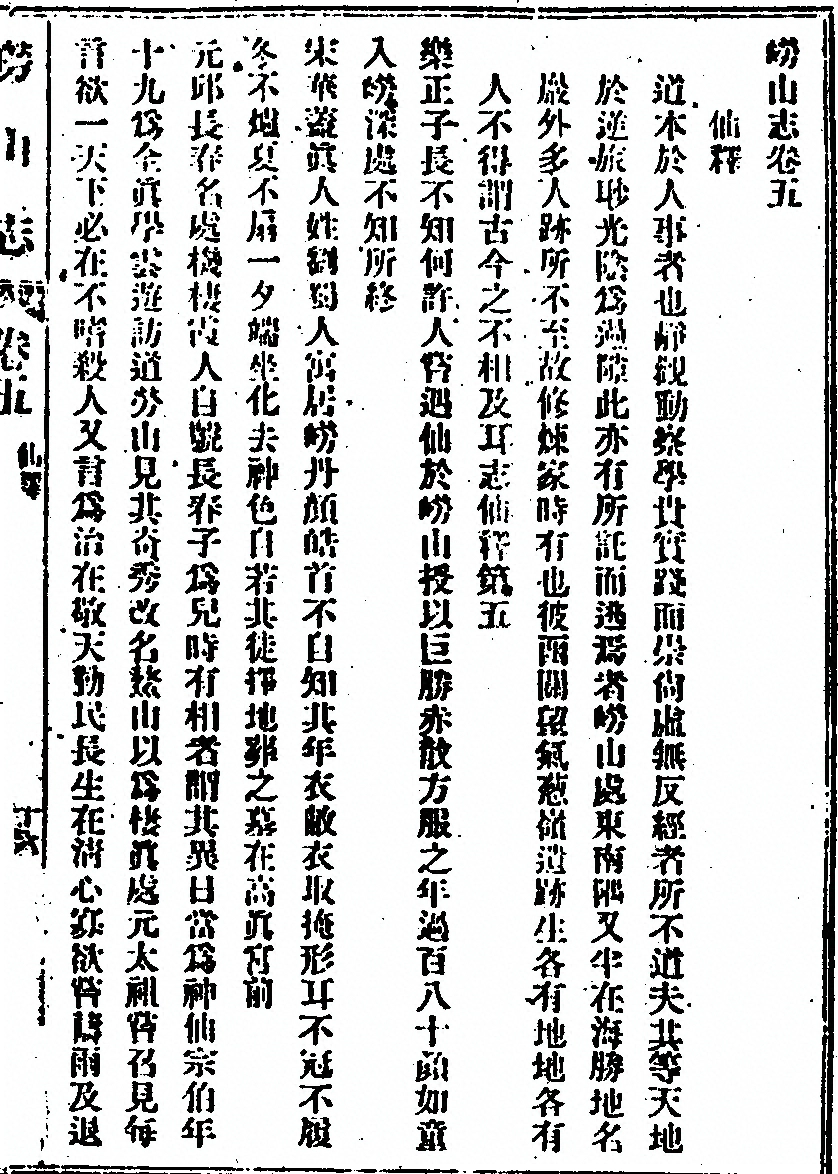 嶗山志卷五
仙釋
道本於人事者也靜觀動察學貴實踐而崇尙虛無反經者所不道夫其等天地
於逆旅眇光陰爲過隙此亦有所託而逃焉者嶗山處東南隅又半在海勝地名
巖外多人跡所不至故修煉家時有也彼函關留氣葱嶺遺跡生各有地地各有
人不得謂古今之不相及耳志仙釋第五
樂正子長不知何許人嘗遇仙於嶗山授以巨勝赤散方服之年過百八十顏如童
入嶗深處不知所終
宋華蓋眞人姓劉蜀人寓居嶗丹顏皓首不自知其年衣敝衣取掩形耳不冠不履
冬不爐夏不扇一夕端坐化去神色自若其徒擇地葬之墓在高眞宮前
元邱長春名處機棲霞人自號長春子爲兒時有相者謂其異日當爲神仙宗伯年
十九爲全眞學雲遊訪道勞山見其奇秀改名鰲山以爲棲眞處元太祖嘗召見每
言欲一天下必在不嗜殺人又言爲治在敬天勤民長生在淸心寡欲嘗禱雨及退
勞山志
卷五
仙釋